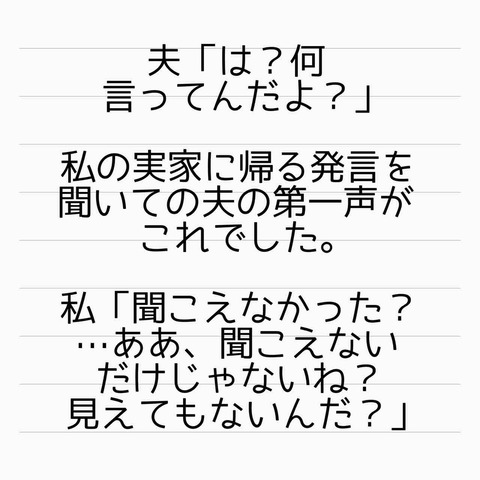 夫「は？何
言ってんだよ？」
私の実家に帰る発言を
聞いての夫の第一声が
これでした。
私「聞こえなかった？
…ああ、聞こえない
だけじゃないね？
見えてもないんだ？」